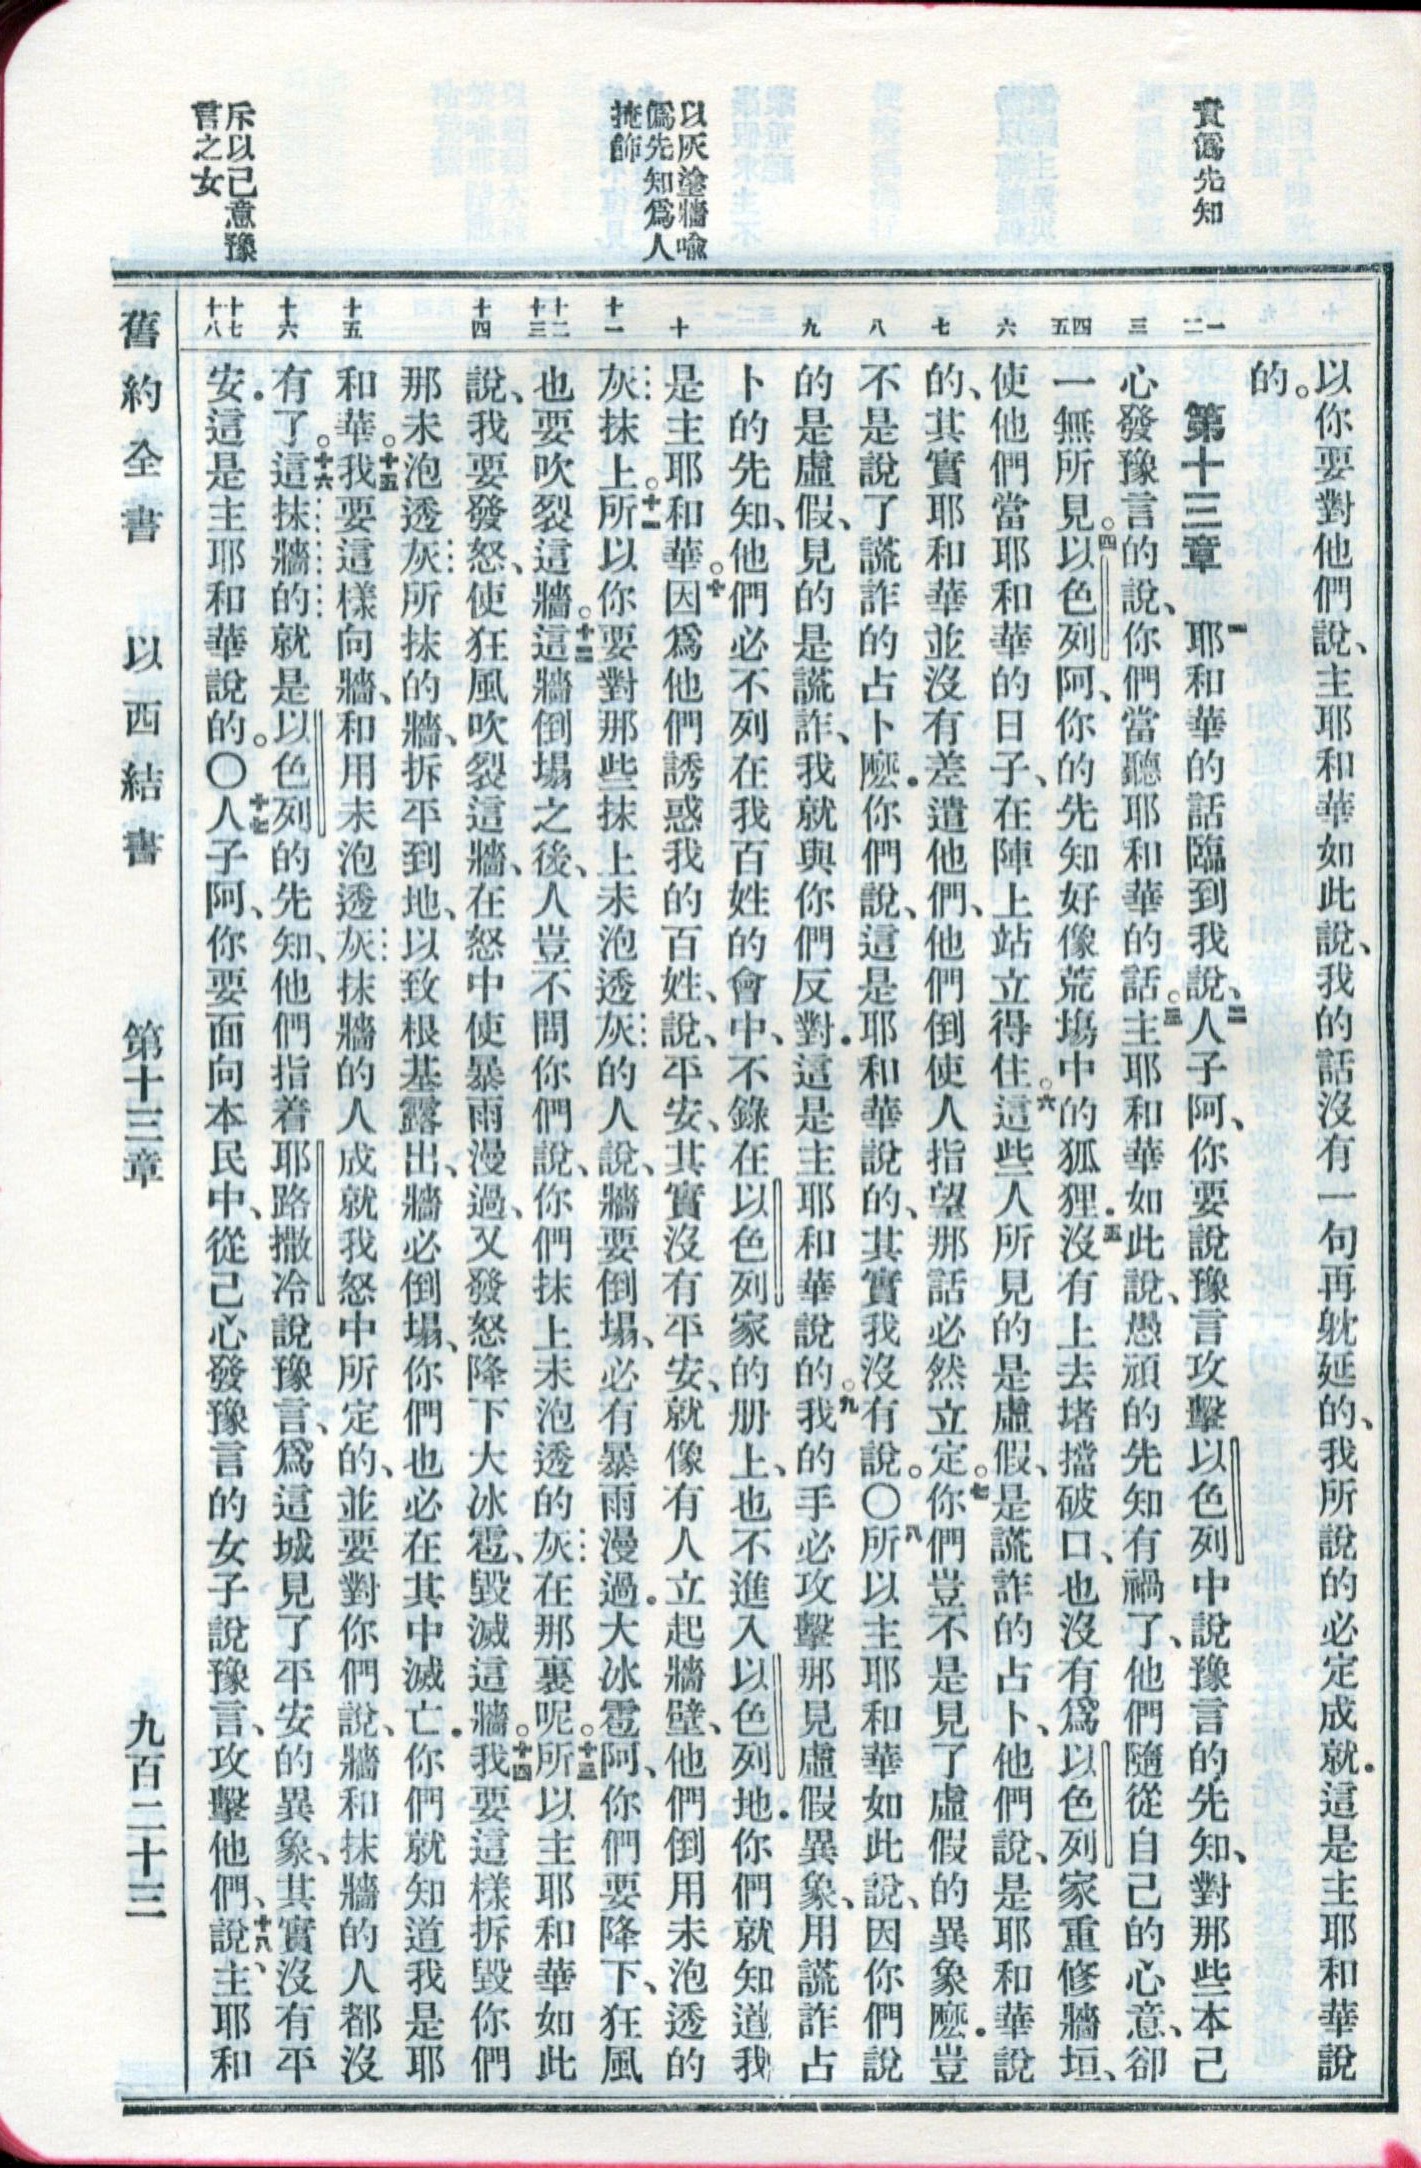 責僞先知
以灰塗牆喩
僞先知爲人
掩飾
斥以己意豫
言之女
一
二
三
四
五
六
七
八
九
十
十一
十二
十三
十四
十五
十六
十七
十八
以你要對他們說、主耶和華如此說、我的話沒有一句再躭延的、我所說的必定成就．這是主耶和華說
的。
第十三章 一耶和華的話臨到我說、二人子阿、你要說豫言攻擊以色列中說豫言的先知、對那些本己
心發豫言的說、你們當聽耶和華的話。三主耶和華如此說、愚頑的先知有禍了、他們隨從自己的心意、卻
一無所見。四以色列阿、你的先知好像荒塲中的狐狸．五沒有上去堵擋破口、也沒有爲以色列家重修牆垣、
使他們當耶和華的日子、在陣上站立得住。六這些人所見的是虛假、是謊詐的占卜、他們說、是耶和華說
的、其實耶和華並沒有差遣他們、他們倒使人指望那話必然立定。七你們豈不是見了虛假的異象麽．豈
不是說了謊詐的占卜麽．你們說、這是耶和華說的、其實我沒有說。〇八所以主耶和華如此說、因你們說
的是虛假、見的是謊詐、我就與你們反對．這是主耶和華說的。九我的手必攻擊那見虛假異象、用謊詐占
卜的先知、他們必不列在我百姓的會中、不錄在以色列家的册上、也不進入以色列地．你們就知道我
是主耶和華。十因爲他們誘惑我的百姓、說、平安、其實沒有平安、就像有人立起牆壁、他們倒用未泡透的
灰抹上。十一所以你要對那些抹上未泡透灰的人說、牆要倒塲、必有暴雨漫過．大冰雹阿、你們要降下、狂風
也要吹裂這牆。十二這牆倒塲之後、人豈不問你們說、你們抹上未泡透的灰在那裏呢。十三所以主耶和華如此
說、我要發怒、使狂風吹裂這牆、在怒中使暴雨漫過、又發怒降下大冰雹、毀滅這牆。十四我要這樣拆毀你們
那未泡透灰所抹的牆、拆平到地、以致根基露出、牆必倒塲、你們也必在其中滅亡．你們就知道我是耶
和華。十五我要這樣向牆、和用未泡透灰抹牆的人成就我怒中所定的、並要對你們說、牆和抹牆的人都沒
有了。十六這抹牆的就是以色列的先知、他們指着耶路撒冷說豫言、爲這城見了平安的異象、其實沒有平
安．這是主耶和華說的。〇十七人子阿、你要面向本民中、從己心發豫言的女子說豫言、攻擊他們、十八說、主耶和
舊約全書 以西結書 第十三章 九百二十三